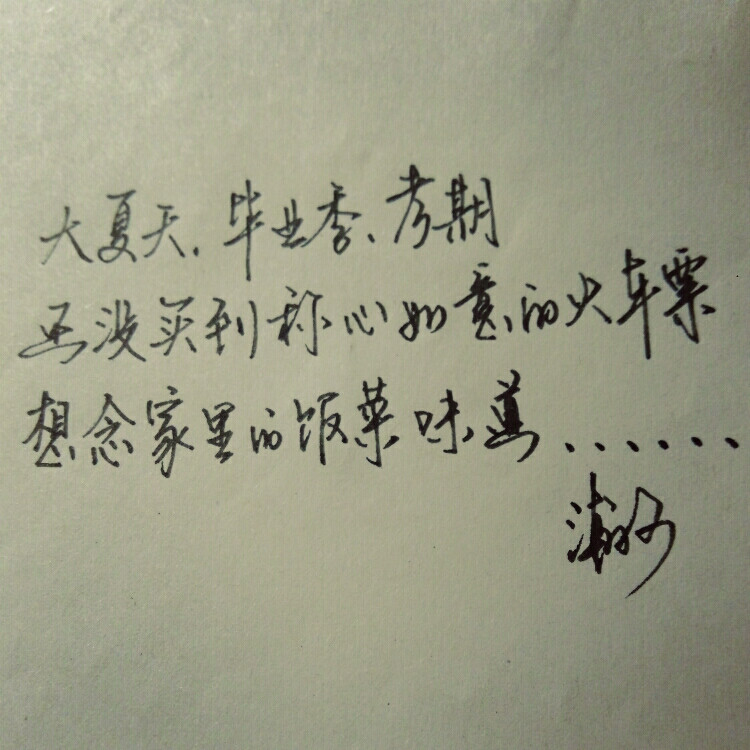 大夏天、毕业季、考期
还没买到称心如意的火车票
想念家里的饭菜味道......